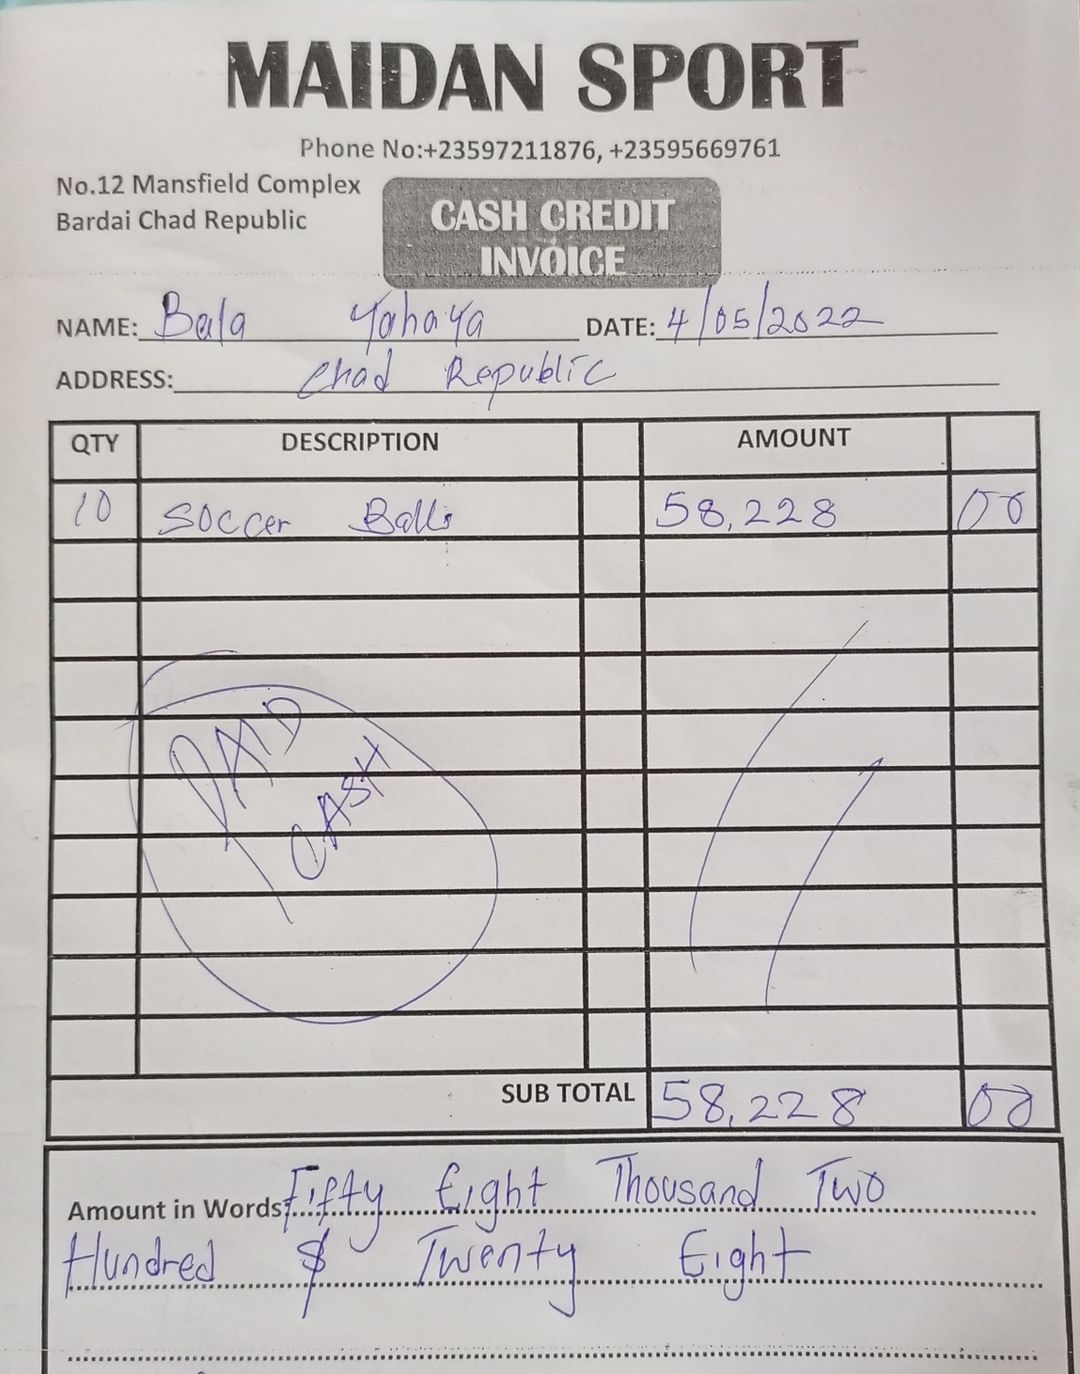 MAIDAN SPORT
Phone No:+23597211876, +23595669761
No.12 Mansfield Complex
Bardai Chad Republic
CASH CREDIT
INVOICE
NAME: Bala Yahaya DATE: 4/05/2022
ADDRESS: Chad Republic
QTY DESCRIPTION AMOUNT
10 Soccer Balls 58,228 00
PAID
CASH
SUB TOTAL 58,228 00
Amount in Words: Fifty Eight Thousand Two
Hundred $ Twenty Eight